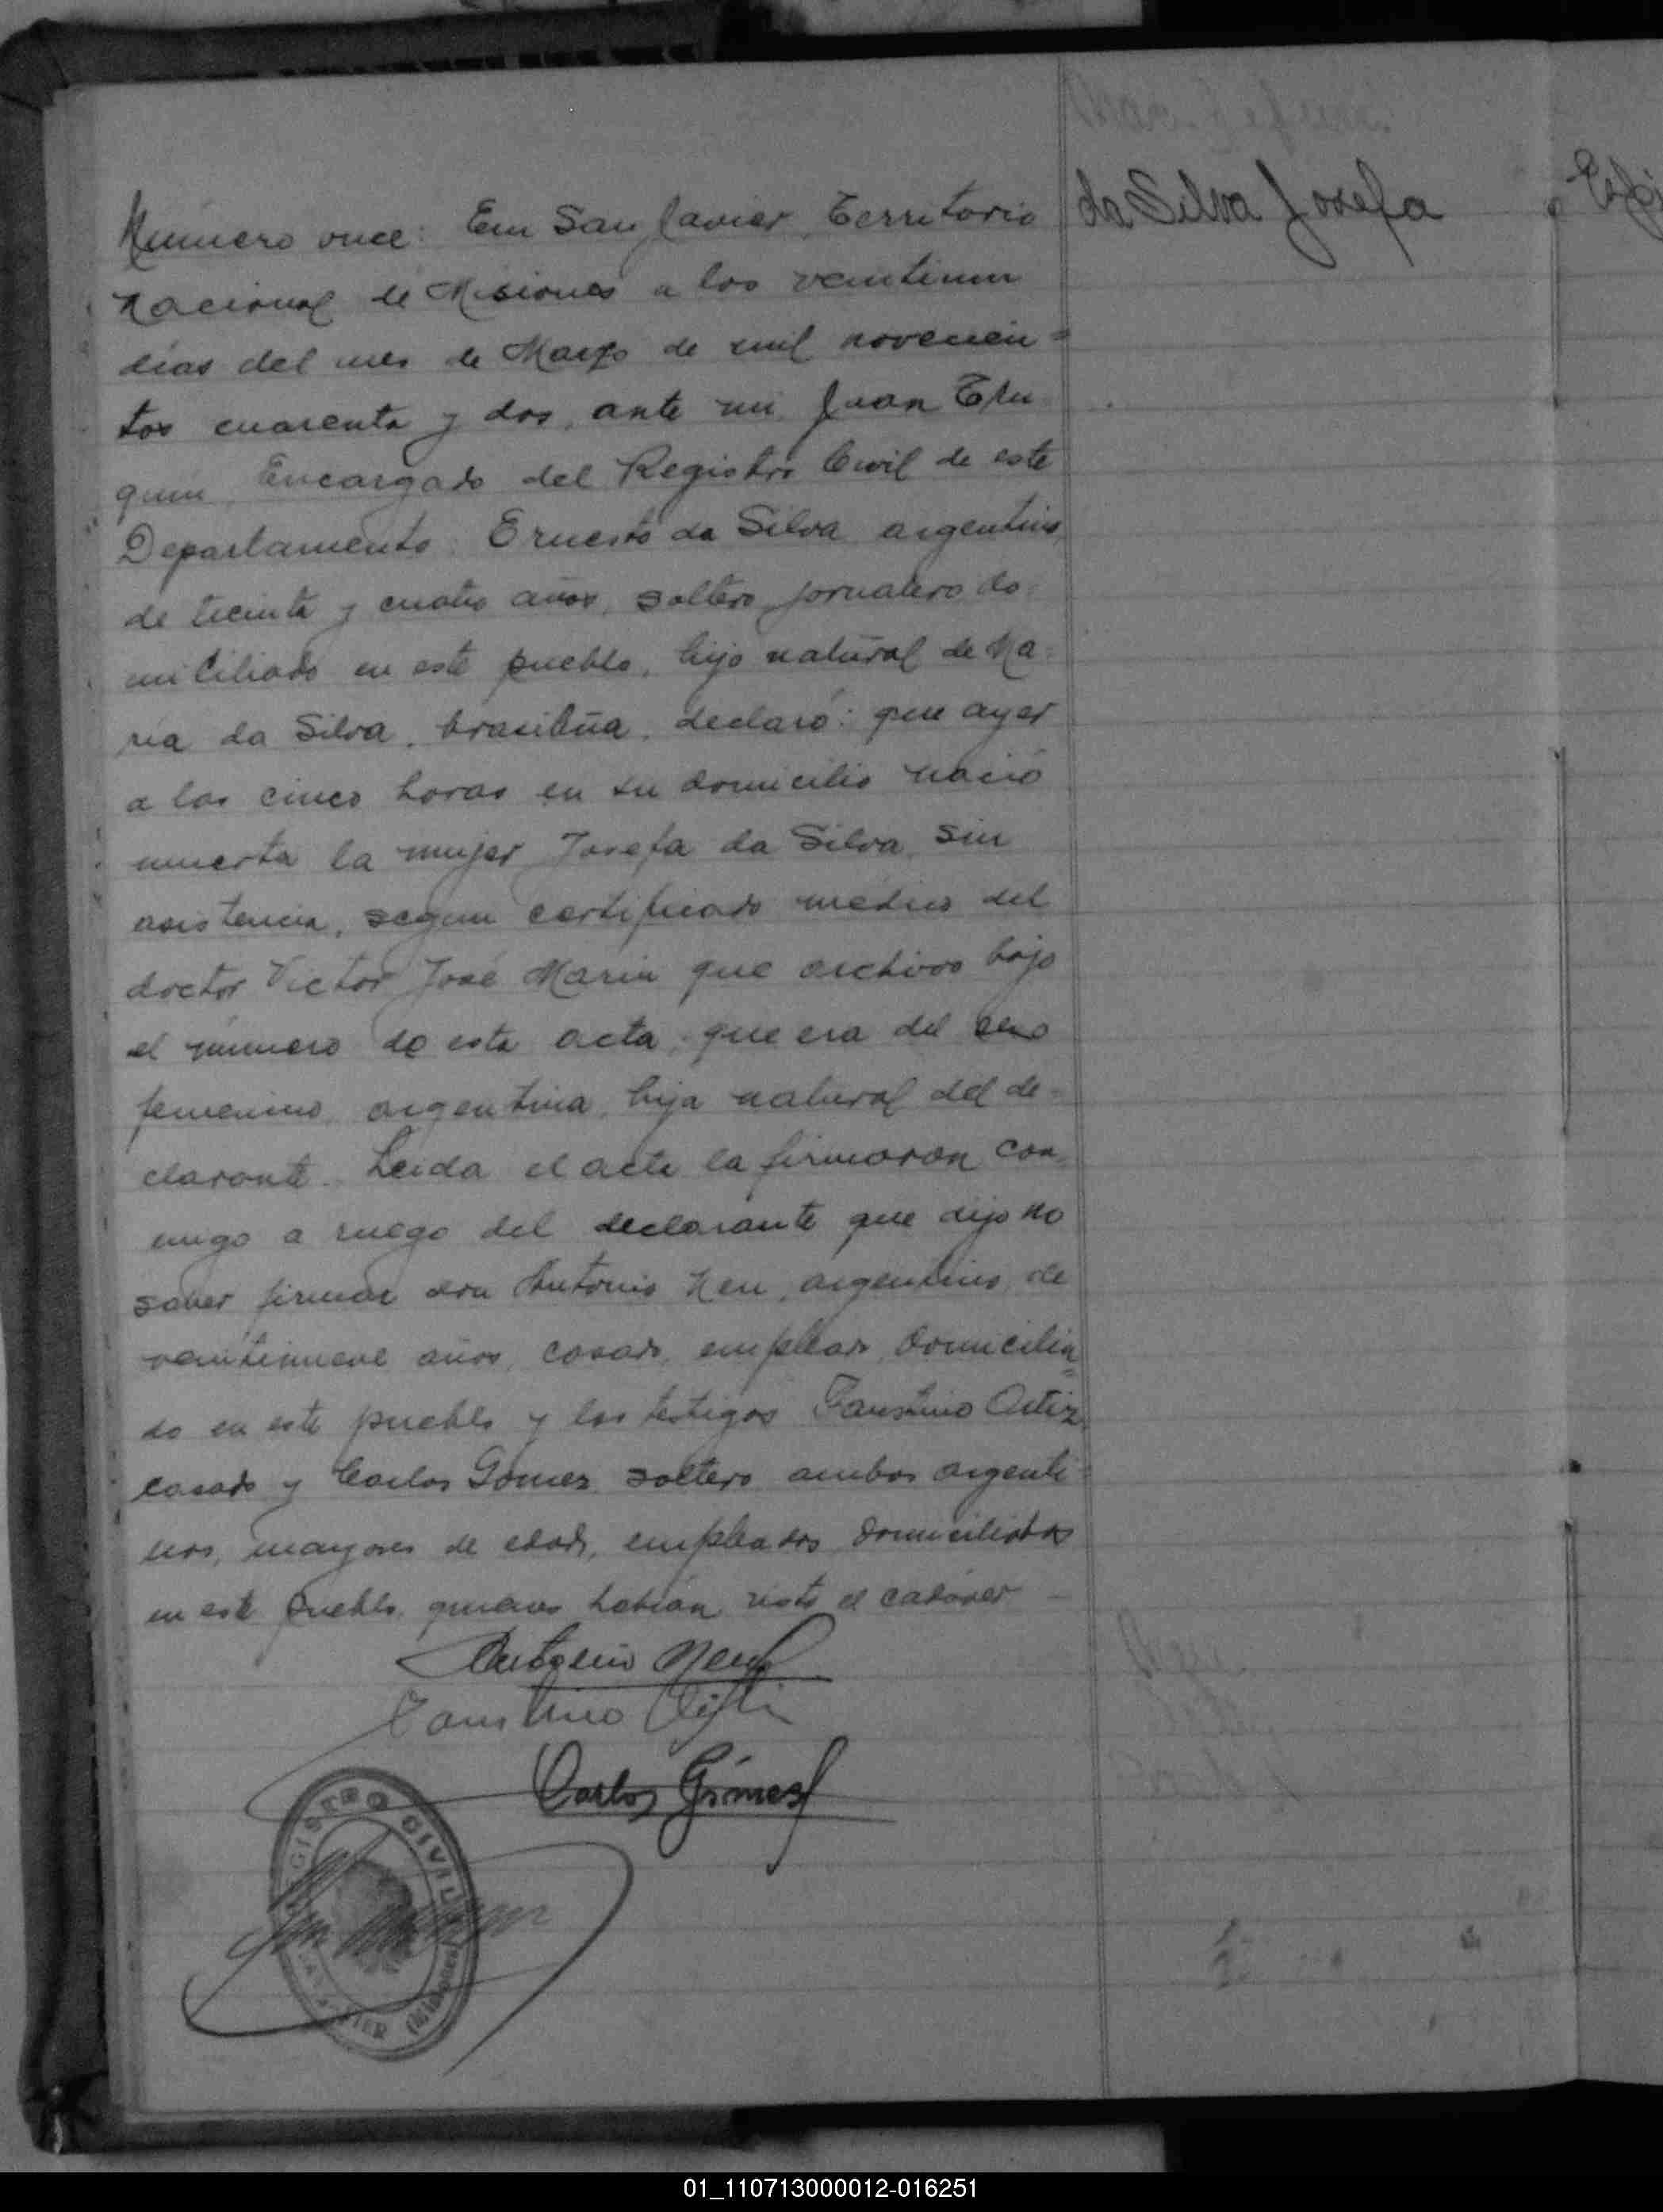 da Silva Josefa
Número once: En San Javier, Territorio
Nacional de Misiones a los veintiun
días del mes de Marzo de mil novecien=
tos cuarenta y dos, ante mi, Juan
Encargado del Registro Civil de este
Departamento, Ernesto da Silva, argentino,
de treinta y cuatro años, soltero, jornalero do=
miciliado en este pueblo, hijo natural de Ma=
ria da Silva, brasileña, declaró: que ayer
a las cinco horas en su domicilio nació
muerta la mujer Josefa da Silva, sin
asistencia, segun certificado medico del
doctor Victor José Marin que archivo bajo
el número de esta acta, que era del sexo
femenino, argentina, hija natural del de=
clarante. Leida el acta la firmaron con=
migo a ruego del declarante que dijo no
saber firmar don Antonio Neu, argentino, de
veintinueve años, casado, empleado, domicilia=
do en este pueblo y los testigos Faustino Ortiz,
casado y Carlos Gómez, soltero, ambos argenti=
nos, mayores de edad, empleados domiciliados
en este pueblo, quienes habian visto el cadáver —
Antonio Neu
Faustino
Carlos Gómez
REGISTRO CIVIL
SAN JAVIER (Misiones)
01_110713000012-016251